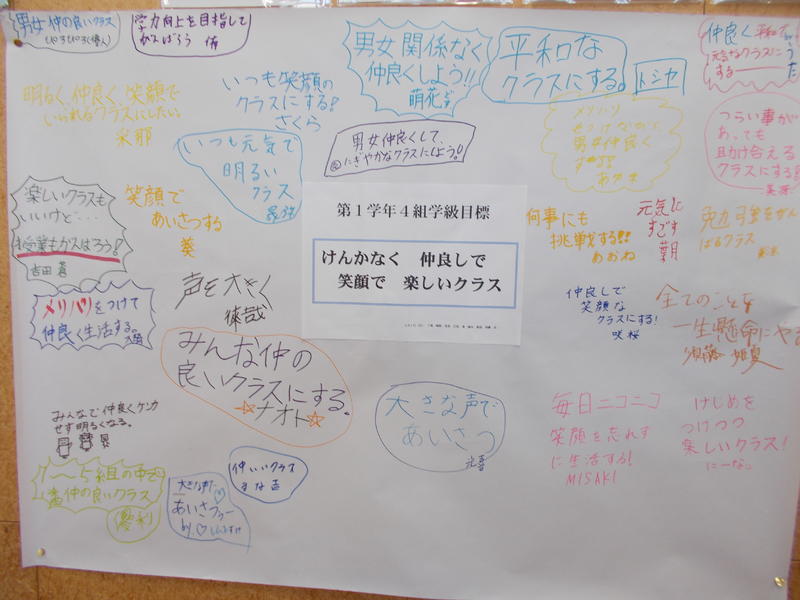 男女仲の良いクラス
学力向上を目指して
がんばろう
男女関係なく
仲良くしよう!!
萌花
平和な
クラスにする。
トシヤ
仲良く平和で
元気なクラスに
する
明るく仲良く笑顔で
いられるクラスにしたい。
采那
いつも笑顔の
クラスにする!
さくら
いつも元気で
明るい
クラス
男女仲良くして、
にぎやかなクラスにしよう!
メリハリ
をつけながら
男女仲良く
する!!
つらい事が
あっても
助け合える
クラスにする!
楽しいクラスも
いいけど…
授業もがんばろう!
吉田 蒼
笑顔で
あいさつする
葵
第1学年4組学級目標
けんかなく 仲良しで
笑顔で 楽しいクラス
何事にも
挑戦する!!
あおね
元気に
すごす
クラス
メリハリをつけて
仲良く生活する。
声を大きく
仲良しで
笑顔な
クラスにする!
咲桜
全てのことを
一生懸命にやる
みんな仲の
良いクラスにする。
☆ナオト☆
大きな声で
あいさつ
毎日ニコニコ
笑顔を忘れず
に生活する!
MISAKI
けじめを
つけつつ
楽しいクラス!
にーな。
みんなで仲良くケンカ
せず明るくなる。
1〜5組の中で
1番仲の良いクラス
仲いいクラス
大きな声で
あいさつ
by